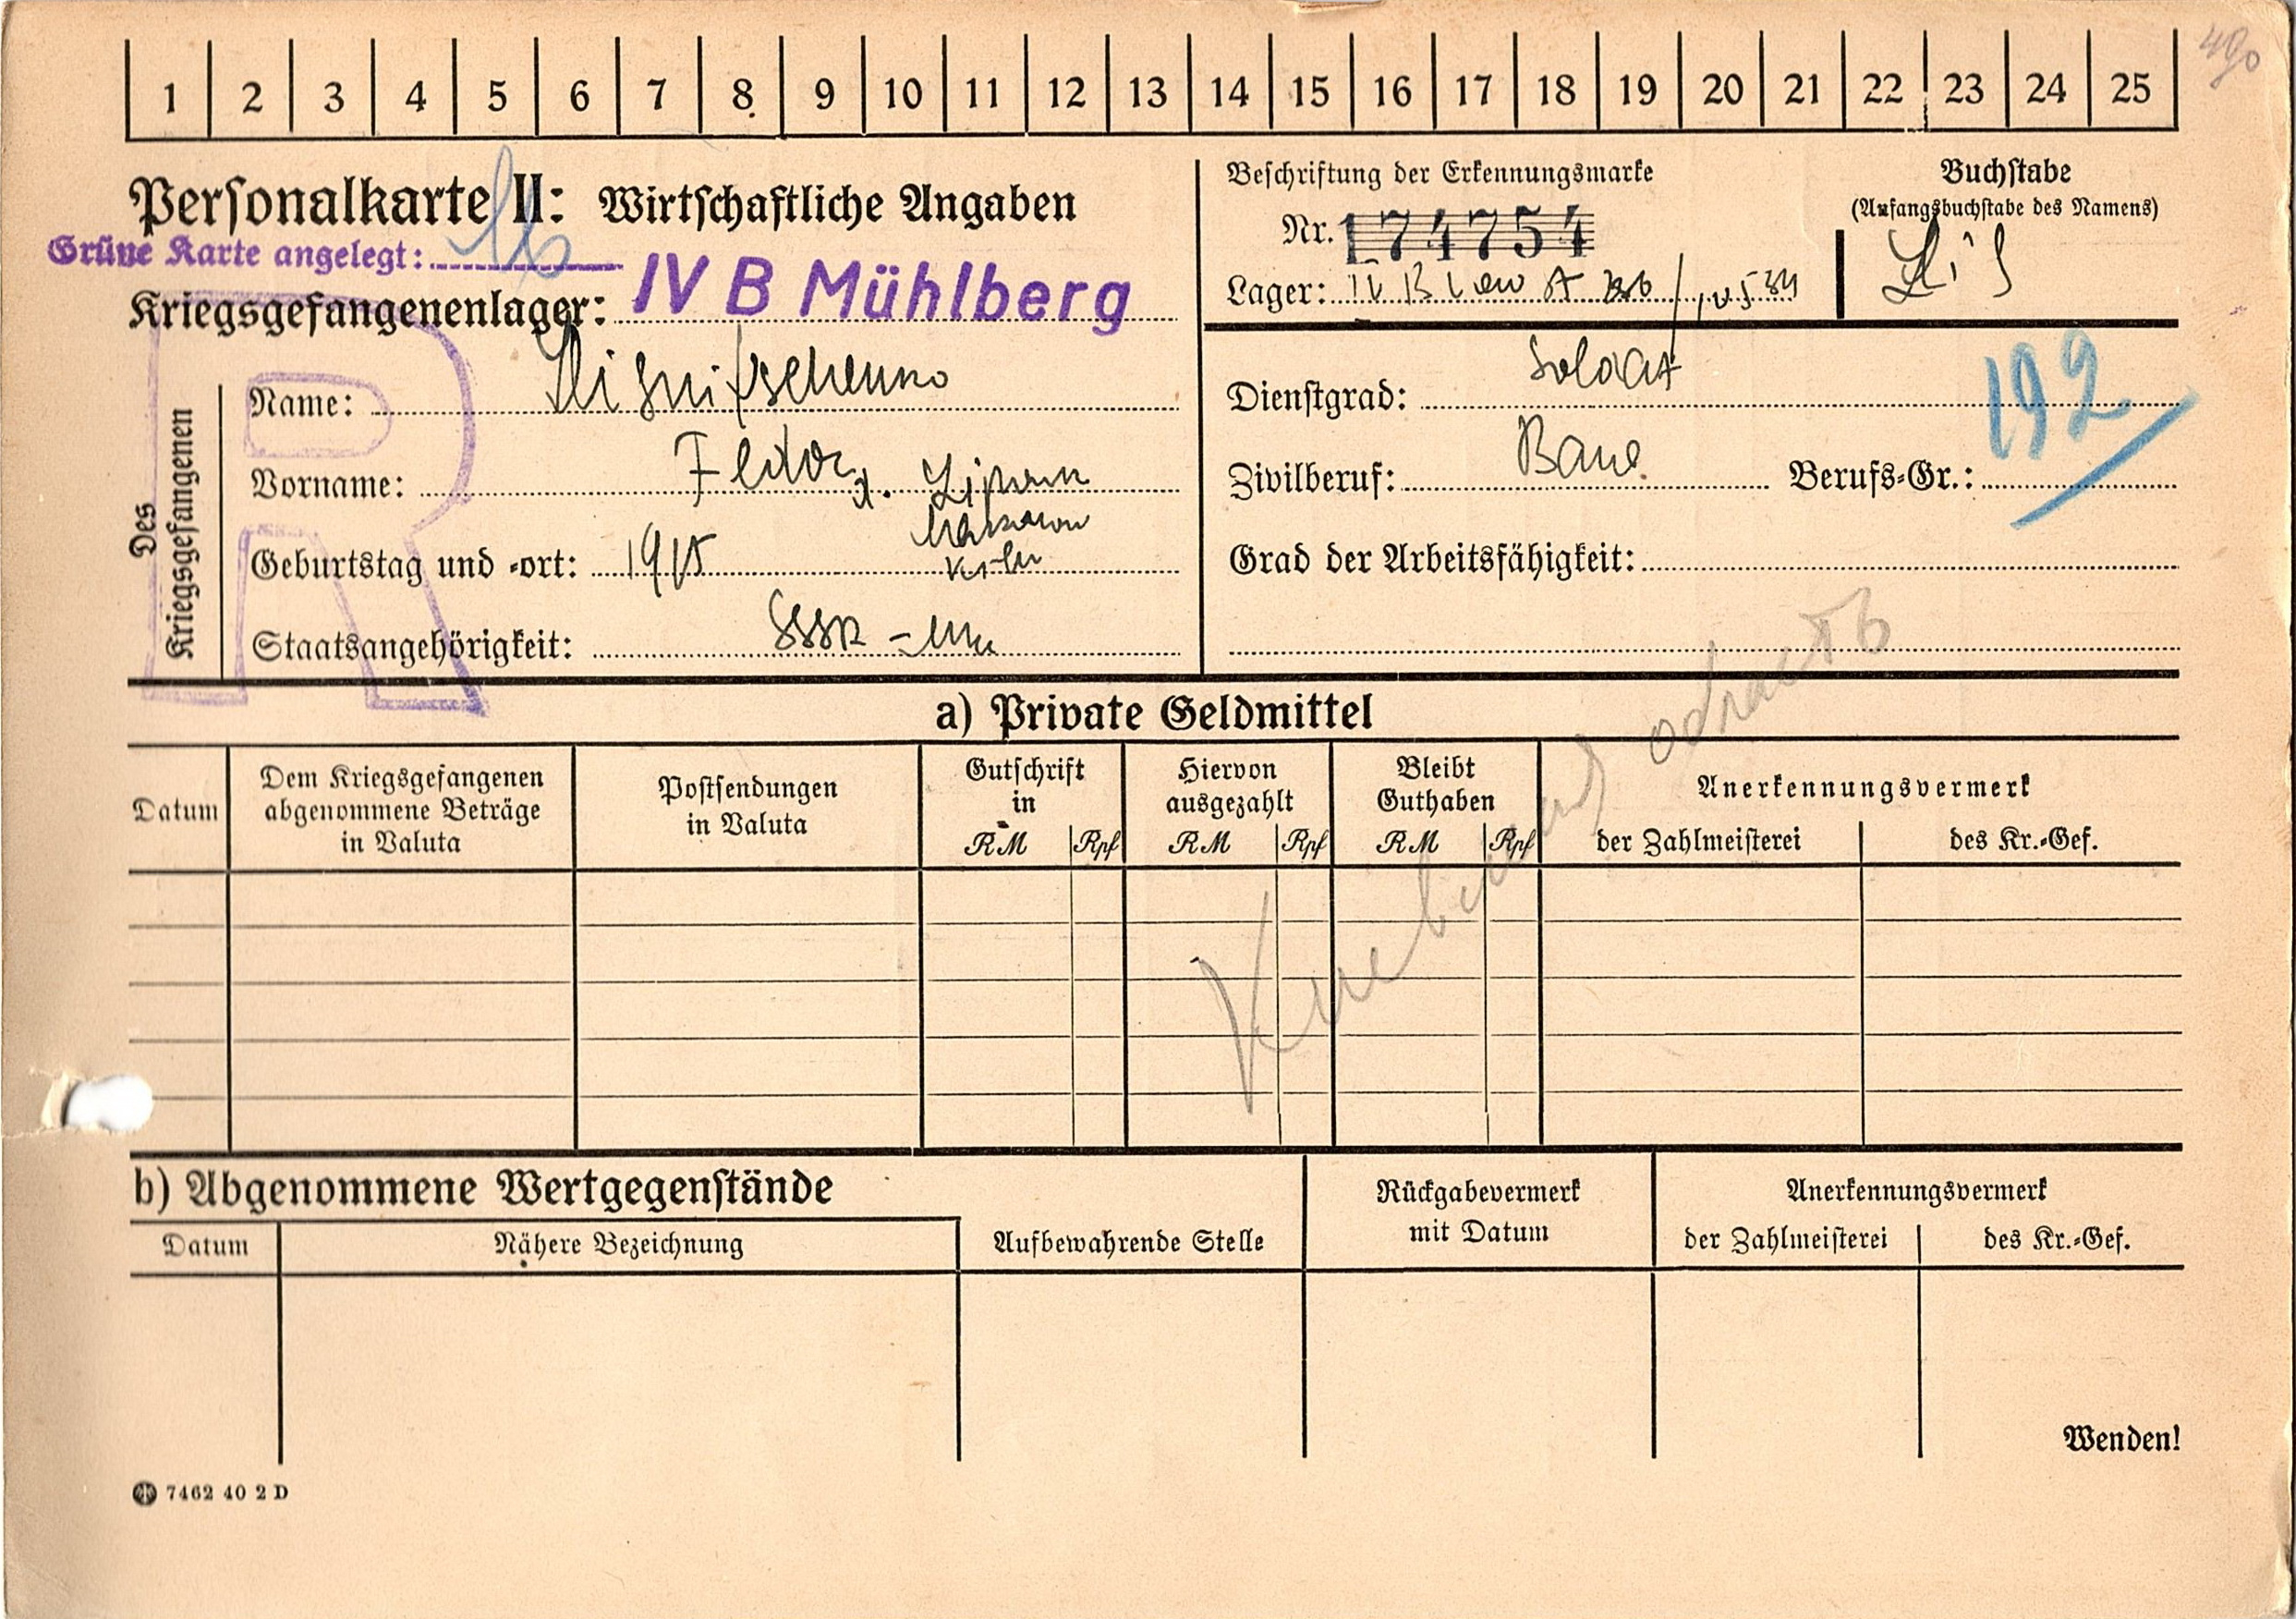 1 2 3 4 5 6 7 8 9 10 11 12 13 14 15 16 17 18 19 20 21 22 23 24 25
Personalkarte II: Wirtschaftliche Angaben
Grüne Karte angelegt:
Kriegsgefangenenlager: IV B Mühlberg
Beschriftung der Erkennungsmarke
Nr. 174754
Lager: IV B
Buchstabe
(Anfangsbuchstabe des Namens)
Des Kriegsgefangenen
Name:
Vorname: Fedor
Geburtstag und -ort: 1915
Staatsangehörigkeit: SSSR
Dienstgrad: Soldat
Zivilberuf: Bauer Berufs-Gr.: 192
Grad der Arbeitsfähigkeit:
R
a) Private Geldmittel
Datum
Dem Kriegsgefangenen
abgenommene Beträge
in Valuta
Postsendungen
in Valuta
Gutschrift
in
RM Rpf
Hiervon
ausgezahlt
RM Rpf
Bleibt
Guthaben
RM Rpf
Anerkennungsvermerk
der Zahlmeisterei
des Kr.-Gef.
b) Abgenommene Wertgegenstände
Datum
Nähere Bezeichnung
Aufbewahrende Stelle
Rückgabevermerk
mit Datum
Anerkennungsvermerk
der Zahlmeisterei
des Kr.-Gef.
Wenden!
7462 40 2 D